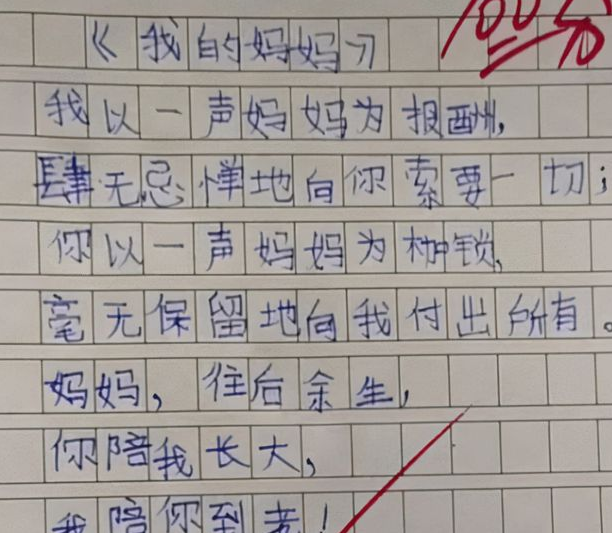 《我的妈妈》
100分
我以一声妈妈为报酬,
肆无忌惮地向你索要一切;
你以一声妈妈为枷锁,
毫无保留地向我付出所有。
妈妈,往后余生,
你陪我长大,
我陪你到老!